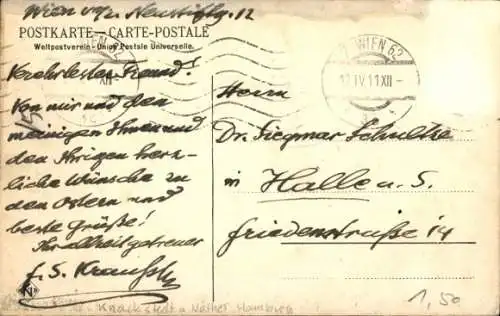 Wien VII/2 Neustiftg. 12
POSTKARTE — CARTE-POSTALE
Weltpostverein - Union Postale Universelle.
WIEN 62
12 IV 11 XII -
Verehrtester Freund!
Von mir und den
meinigen Ihnen und
den Ihrigen herz-
liche Wünsche zu
den Ostern und
beste Grüße!
Ihr allzeit getreuer
F. S. Krauss
Herrn
Dr. Siegmar Schultze
in Halle a. S.
Friedenstraße 14
Knackstedt u. Näther Hamburg
1,50